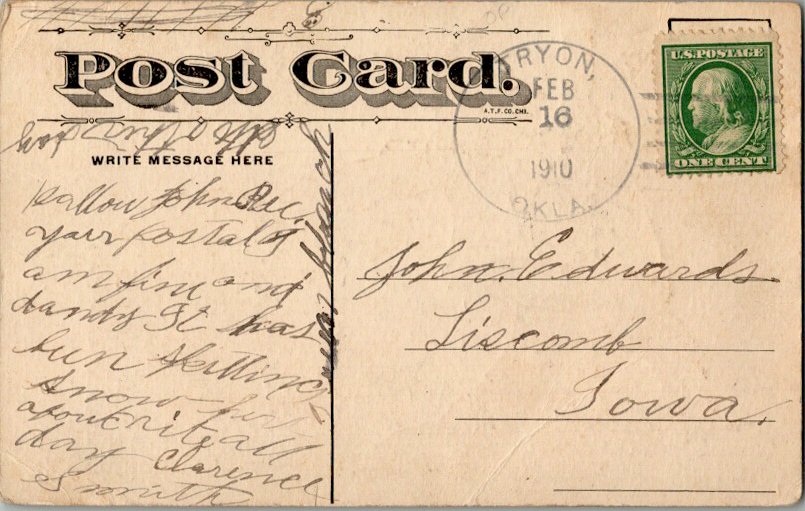 Post Card.
A.T.F. CO. CHI.
WRITE MESSAGE HERE
TRYON,
FEB
16
1910
OKLA.
U.S. POSTAGE
ONE CENT
Hallow John Rec
your postal
am fine and
dandy It has
bun skitting
snow
about rite all
day Clarence
Smith
John. Edwards.
Liscomb
Iowa.